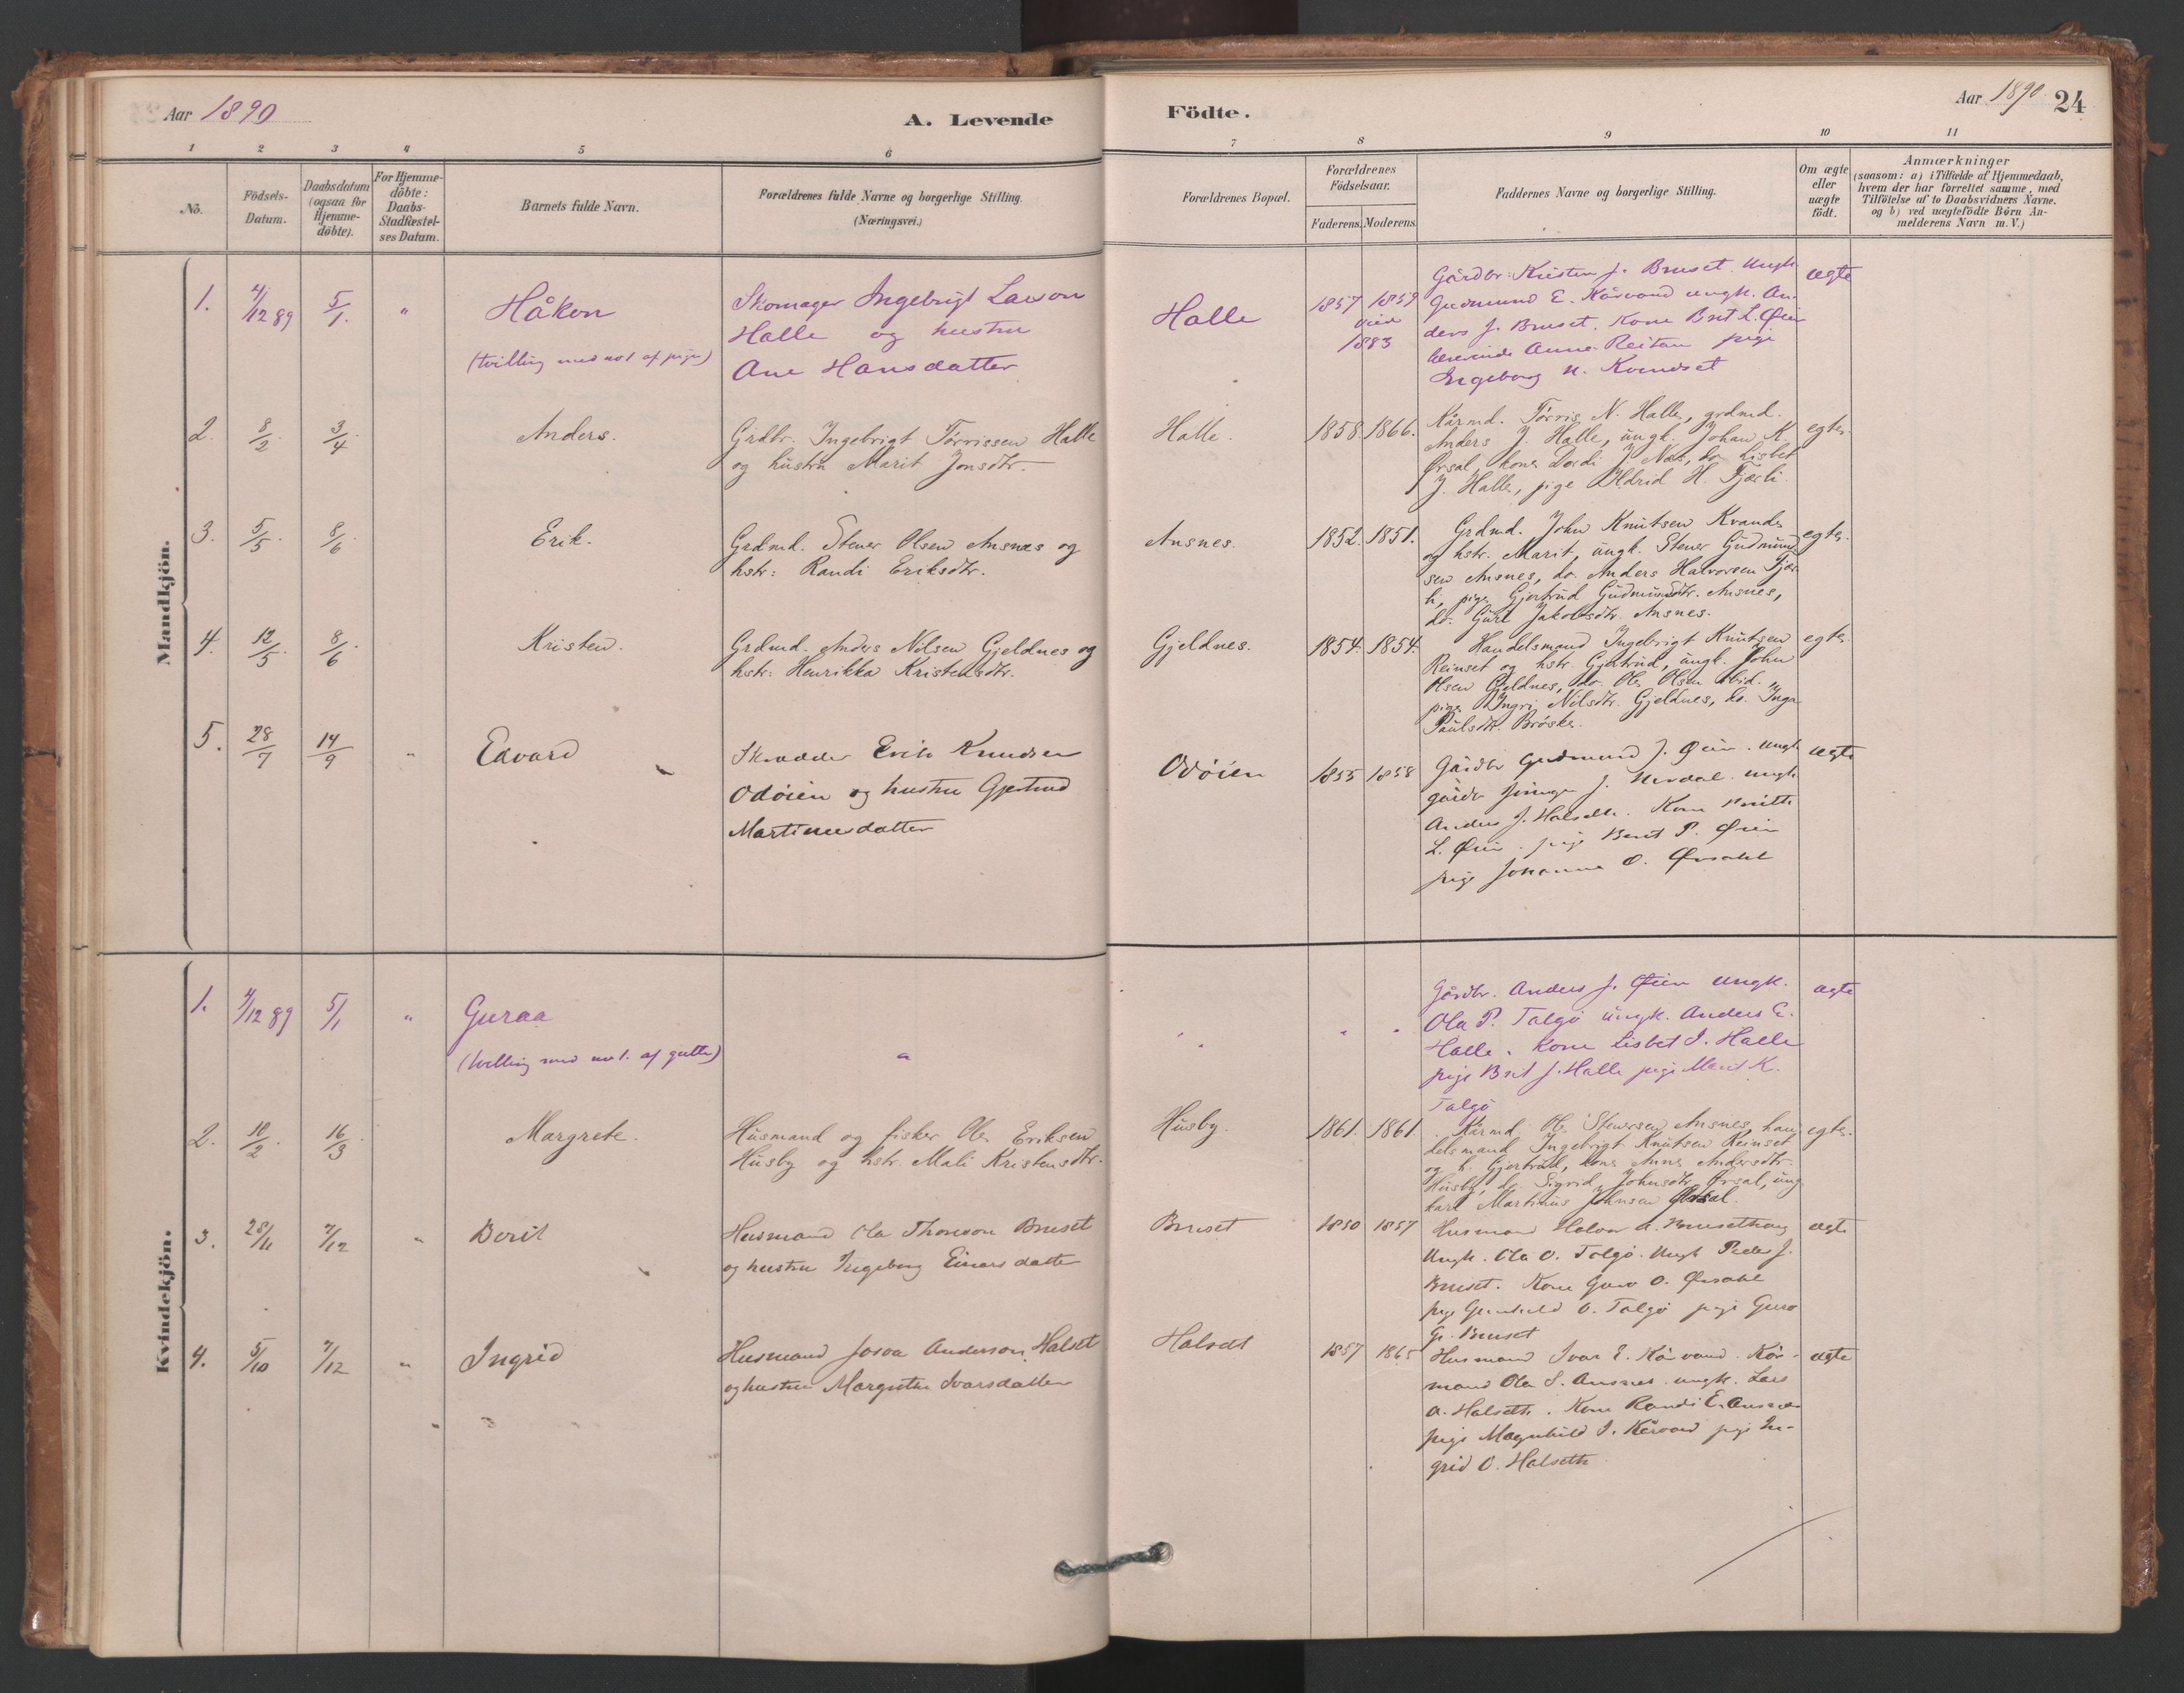 Aar 1890
A. Levende
Födte.
Aar 1890
24
1 2 3 4 5 6 7 8 9 10 11
No.
Födsels-
Datum.
Daabsdatum
(ogsaa for
Hjemme-
döbte).
For Hjemme-
döbte:
Daabs-
Stadfæstel-
ses Datum.
Barnets fulde Navn.
Forældrenes fulde Navne og borgerlige Stilling.
(Næringsvei.)
Forældrenes Bopæl.
Forældrenes
Födselsaar.
Faderens. Moderens.
Faddernes Navne og borgerlige Stilling.
Om ægte
eller
uægte
födt.
Anmærkninger
(saasom: a) i Tilfælde af Hjemmedaab,
hvem der har forrettet samme, med
Tilföielse af to Daabsvidners Navne.
og b) ved uægtefödte Börn An-
melderens Navn m. V.)
Mandkjön.
1. 4/12 89 5/1. "
Håkon
(tvilling med no 1 af piger)
Skomager Ingebrigt Larson
Halle og hustru
Ane Hansdatter
Halle
1857 1859
viede
1883
Gårdbr. Kristen J. Bruset. Ungk.
Gudmund E. Kårvand ungk. An-
ders J. Bruset. Kone Brit L. Øien
lærerinde Anna Reitan pige
Ingeborg N. Kvendset
ægte
2. 8/2. 3/4.
Anders.
Grdbr. Ingebrigt Tørrissen Halle
og hustru Marit Jonsdtr.
Halle.
1858. 1866.
Kårmd. Tørris N. Halle, grdmd.
Anders J. Halle, ungk. Johan K.
Ørsal, kone Dordi J. Næs, do. Lisbet
J. Halle, pige Ildrid H. Fjærli.
egte.
3. 5/5. 8/6.
Erik.
Grdmd. Stener Olsen Ansnes og
hstr: Randi Eriksdtr.
Ansnes.
1852. 1851.
Grdmd. John Knutsen Kvande
og hstr. Marit, ungk. Stener Gudmund-
sen Ansnes, do. Anders Halvorsen Fjær-
li, pige Gjertrud Gudmundsdtr. Ansnes,
do. Guri Jakobsdtr. Ansnes.
egte.
4. 12/5. 8/6.
Kristen.
Grdmd. Anders Nilsen Gjeldnes og
hstr: Henrikka Kristensdtr.
Gjeldnes.
1854. 1854.
Handelsmand Ingebrigt Knutsen
Reinset og hstr. Gjertrud, ungk. John
Olsen Gjeldnes, do. Ole Olsen ibid.
pige Ingri Nilsdtr. Gjeldnes, do. Inga
Paulsdtr. Brøske.
egte.
5. 28/7 14/9 "
Edvard
Skrædder Erik Knudsen
Odøien og hustru Gjertrud
Martinusdatter
Odøien
1855 1858
Gårdbr Gudmund J. Øien. Ungk
gårdbr J. Nerdal. ungk
Anders J. Halseth. Kone
L. Øien. pige Berit P. Øien
pige Johanna O. Ørsahl
ægte
Kvindekjön.
1. 4/12 89 5/1 "
Guraa
(tvilling med no 1. af gutter)
"
" " "
Gårdbr. Anders J. Øien ungk.
Ola P. Talgö ungk. Anders E.
Halle. Kone Lisbet I. Halle
pige Brit J. Halle pige Marit K.
Talgö
ægte
2. 10/2. 16/3.
Margrete.
Husmand og fisker Ole Eriksen
Husby og hstr. Mali Kristensdtr.
Husby.
1861. 1861.
Kårmd. Ole Stenersen Ansnes, han-
delsmand Ingebrigt Knutsen Reinset
og h. Gjertrud, kone Anne Andersdtr.
Husby, do. Sigrid Johnsdtr. Ørsal, ung-
karl Martinus Johnsen Ørsal.
egte.
3. 28/11 7/12 "
Berit
Husmand Ola Thomson Bruset
og hustru Ingeborg Einarsdatter
Bruset
1850 1857
Husmand Halvor A. Brusethaug
Ungk. Ola O. Talgö. Ungk Peder J.
Bruset. Kone Guro O. Ørsahl
pige Gunhild O. Talgö pige Guro
G. Bruset
ægte
4. 5/10 7/12 "
Ingrid
Husmand Josva Anderson Halset
og hustru Margrethe Ivarsdatter
Halseth
1857 1865
Husmand Ivar E. Kårvand. Kår-
mand Ola S. Ansnes. ungk. Lars
A. Halseth. Kone Randi E. Ansnes
pige Magnhild I. Kårvand pige In-
grid O. Halseth
ægte